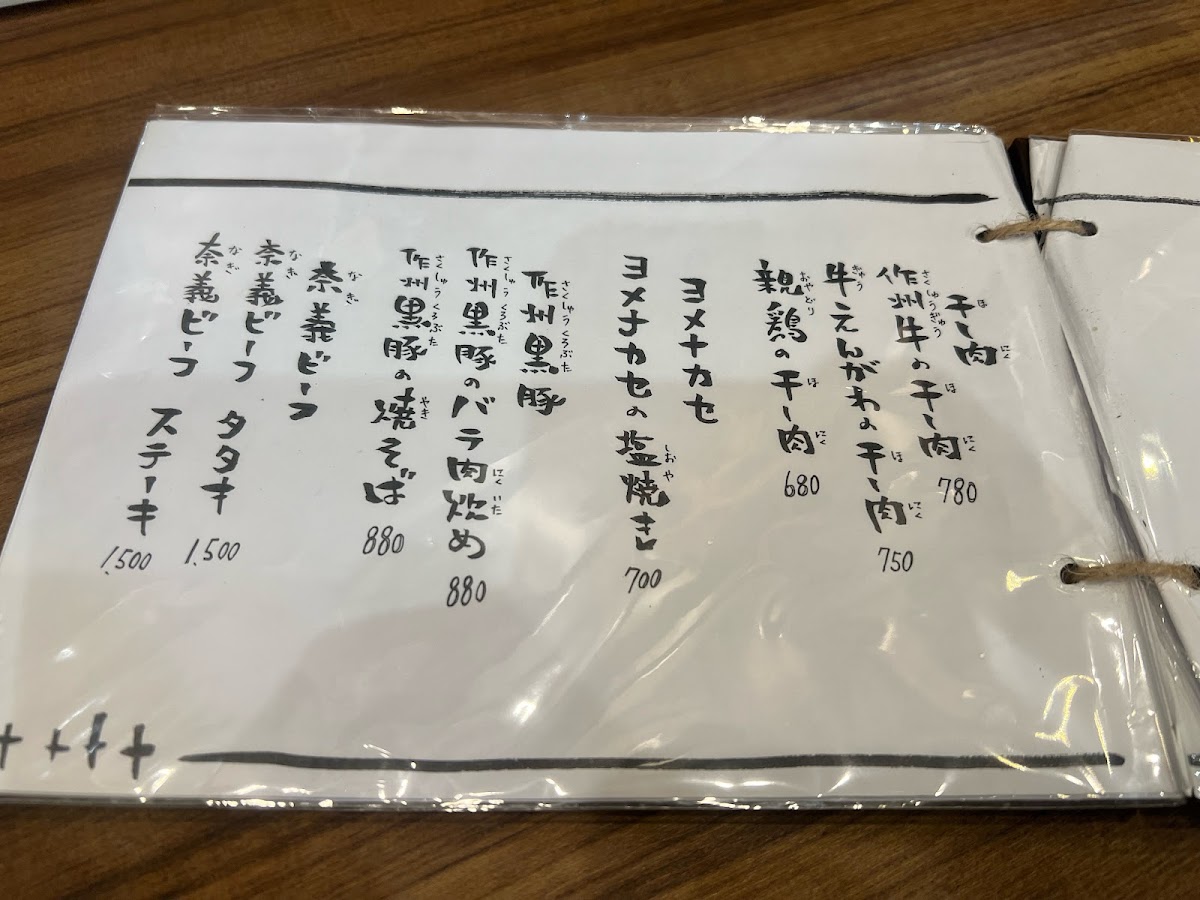 干し肉
作州牛の干し肉 780
牛えんがわの干し肉 750
親鶏の干し肉 680
ヨメナカセ
ヨメナカセの塩焼き 700
作州黒豚
作州黒豚のバラ肉炒め 880
作州黒豚の焼そば 880
奈義ビーフ
奈義ビーフ タタキ 1,500
奈義ビーフ ステーキ 1,500